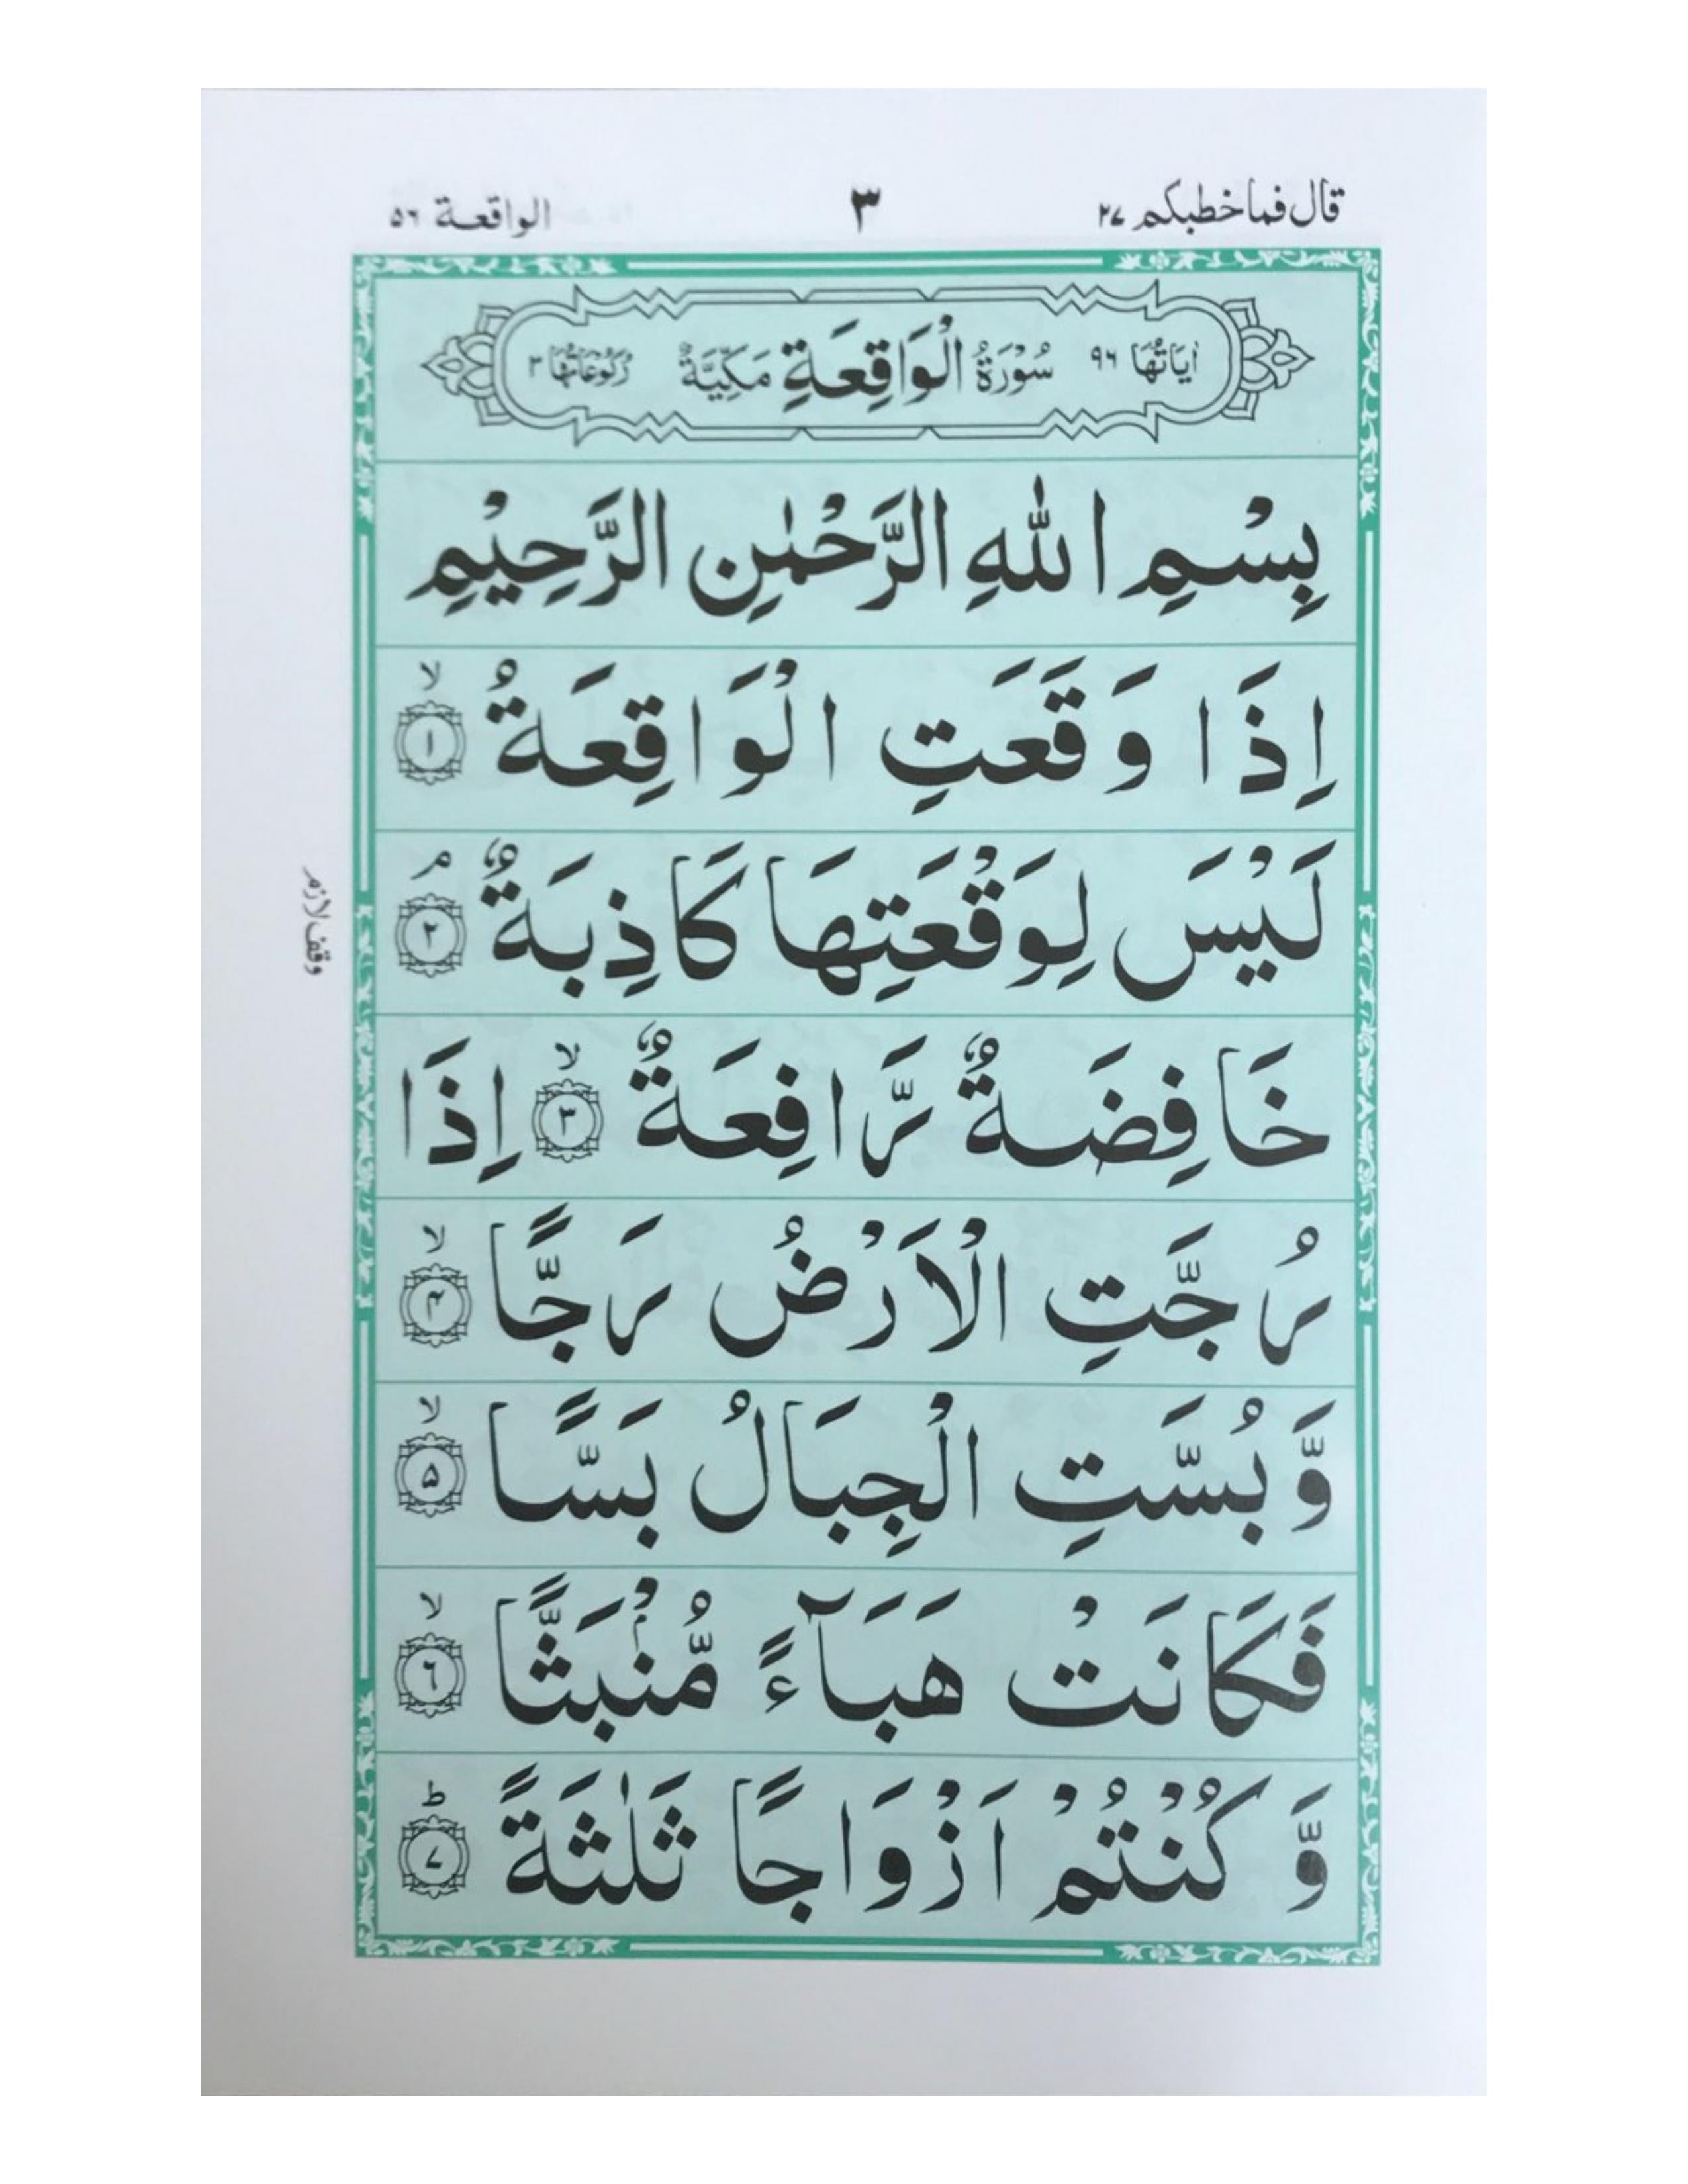 قال فما خطبكم ٢٧
٣
الواقعة ٥٦
اٰيَاتُهَا ٩٦ سُوْرَةُ الْوَاقِعَةِ مَكِّيَّةٌ رُكُوْعَاتُهَا ٣
بِسْمِ اللّٰهِ الرَّحْمٰنِ الرَّحِيْمِ
اِذَا وَقَعَتِ الْوَاقِعَةُ ۙ‏ ﴿۱﴾
لَيْسَ لِوَقْعَتِهَا كَاذِبَةٌ ۘ‏ ﴿۲﴾
وقف لازم
خَافِضَةٌ رَّافِعَةٌ ۙ‏ ﴿۳﴾ اِذَا
رُجَّتِ الْاَرْضُ رَجًّا ۙ‏ ﴿۴﴾
وَّبُسَّتِ الْجِبَالُ بَسًّا ۙ‏ ﴿۵﴾
فَكَانَتْ هَبَآءً مُّنْۢبَثًّا ۙ‏ ﴿٦﴾
وَّكُنْتُمْ اَزْوَاجًا ثَلٰثَةً ؕ‏ ﴿۷﴾